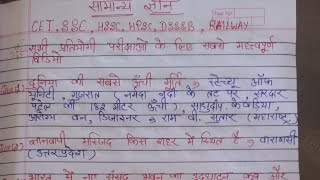 सामान्य ज्ञान
CET, SSC, HSSC, HPSC, DSSSB, RAILWAY
सभी प्रतियोगी परीक्षाओं के लिए सबसे महत्वपूर्ण
विडियो
दुनिया की सबसे ऊँची मूर्ति स्टेच्यू ऑफ
यूनिटी, गुजरात (नर्मदा नदी के तट पर, सरदार
पटेल की 182 मीटर ऊँची), साधुदीप केवडिया,
वन, डिजाइनर राम वी. सुतार (महाराष्ट्र)
ज्ञानवापी मस्जिद किस शहर में स्थित है वाराणसी
(उत्तरप्रदेश)
भारत में नए संसद भवन का उद्घाटन कब और